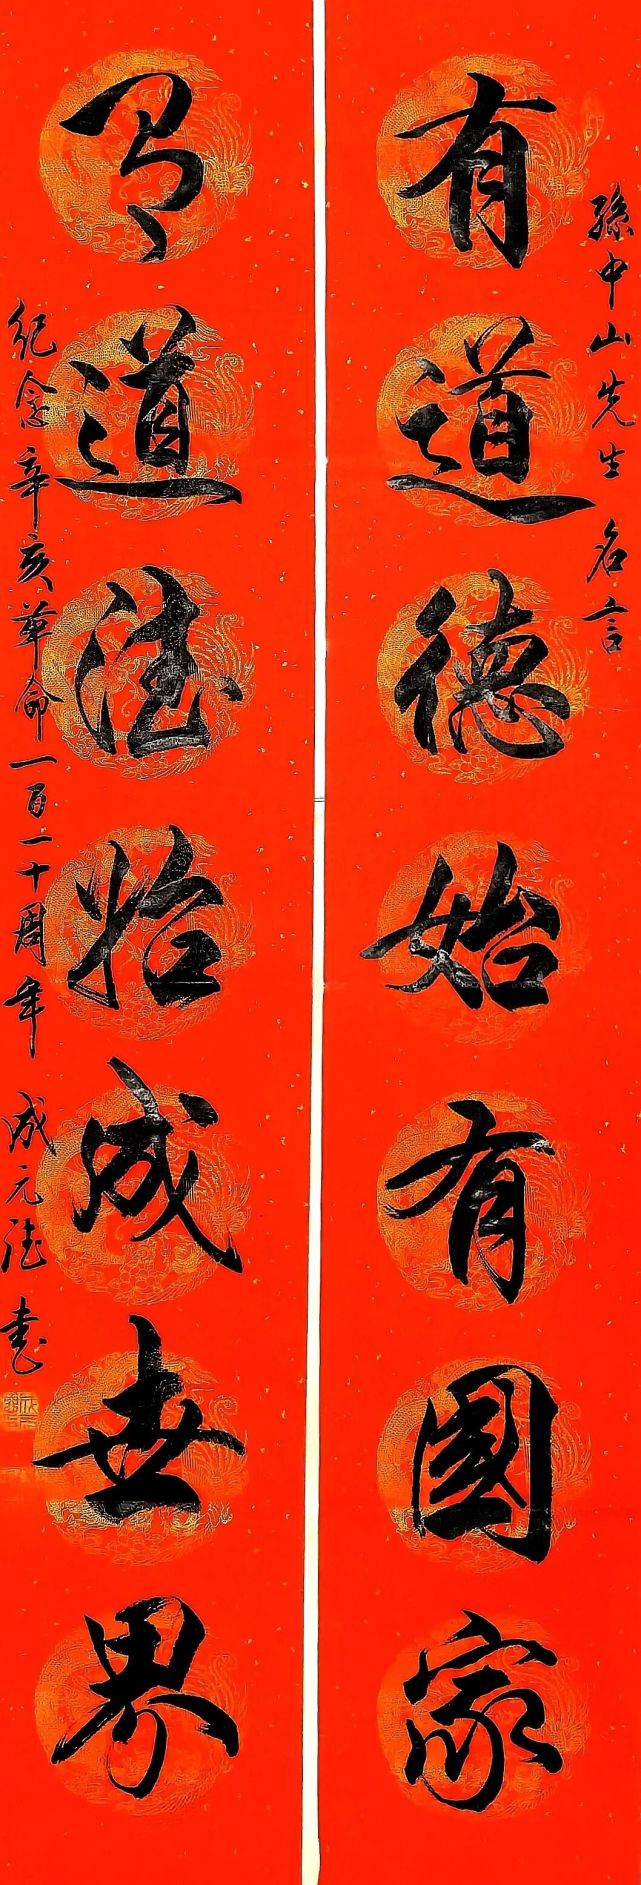 孫中山先生名言
有道德始有國家
有道德始成世界
纪念辛亥革命一百一十周年 成元德書